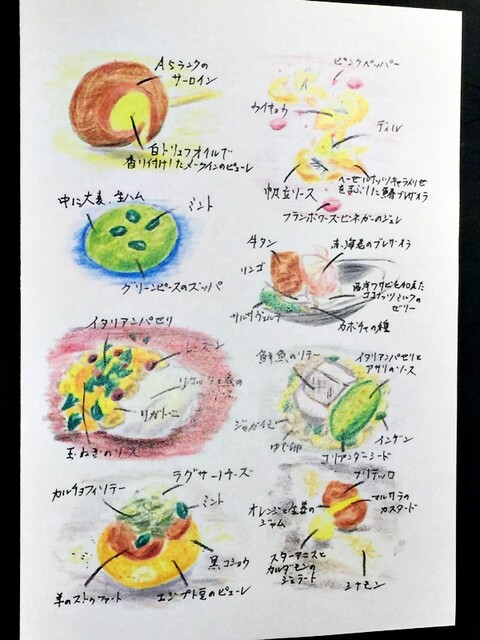 A5ランクの
サーロイン
白トリュフオイルで
香り付けしたメークインのピューレ
中に大麦、生ハム
ミント
グリーンピースのズッパ
イタリアンパセリ
レーズン
リガトーニ
玉ねぎのソース
カルチョフィソテー
ラグサーノチーズ
ミント
黒コショウ
羊のストゥファート
エジプト豆のピューレ
ピンクペッパー
ウイキョウ
ディル
帆立ソース
ヘーゼルナッツキャラメリゼ
をまぶした鰆ブレザオラ
フランボワーズビネガーのジュレ
牛タン
赤海老のブレザオラ
リンゴ
西洋ワサビを加えた
ココナッツミルクの
ゼリー
サルサヴェルデ
カボチャの種
鮮魚のソテー
イタリアンパセリと
アサリのソース
ジャガイモ
ゆで卵
インゲン
コリアンダーシード
フリテッロ
マルサラの
カスタード
オレンジと生姜の
ジャム
スターアニスと
カルダモンの
ジェラート
シナモン